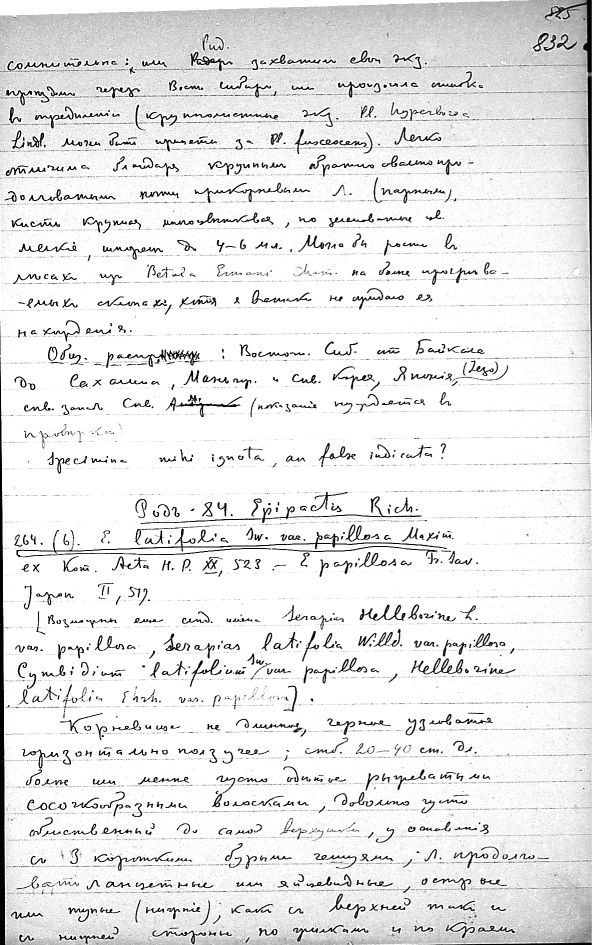 825
832
сомнительна: или Рид. захватили свои экз.
проездом через Вост. Сибирь, или произошла ошибка
в определении (крупнолистные экз. Pl. hyperborea
Lindl. могли быть приняты за Pl. fuscescens). Легко
отличима благодаря крупным обратно овально про-
долговатым почти прикорневым л. (парным),
кисть крупная многоцветковая, но зеленоватые цв.
мелкие, шпорец до 4–6 мл. Могла бы расти в
лесах из Betula Ermani Cham. на более прогрева-
емых склонах, хотя я все таки не ожидаю её
нахождения.
Общ. распр. : Восточ. Сиб. от Байкала
до Сахалина, Маньчж. и сев. Корея, Япония, (Iezo)
сев. запад. Сев. (показание нуждается в
проверке)
Specimina mihi ignota, an false indicata?
Родъ - 84. Epipactis Rich.
264. (6). E. latifolia Sw. var. papillosa Maxim.
ex Kom. Acta H. P. XX, 523 – E papillosa Fr. Sav.
Japon II, 519.
[Возможны еще синд. имена Serapias Helleborine L.
var. papillosa, Serapias latifolia Willd. var. papillosa,
Cymbidium latifolium Sw. var papillosa, Helleborine
latifolia Ehrh. var. papillosa].
Корневище не длинное, черное узловатое
горизонтально ползучее; стб. 20–40 ст. дл.
более или менее густо одетые рыжеватыми
сосочкообразными волосками, довольно густо
облиственный до самой верхушки, у основания
с 3 короткими бурыми чешуями; л. продолго-
вато ланцетные или яйцевидные, острые
или тупые (нижние), как с верхней так и
с нижней стороны, по жилкам и по краям